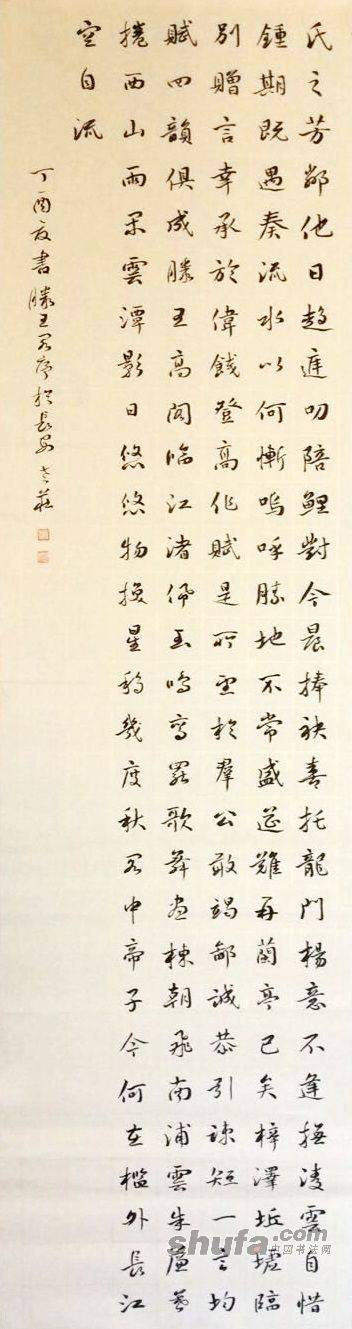 氏之芳鄰他日趨庭叨陪鯉對今晨捧袂喜托龍門楊意不逢撫凌雲自惜
鍾期既遇奏流水以何慚嗚呼勝地不常盛筵難再蘭亭已矣梓澤坵墟臨
別贈言幸承於偉餞登高作賦是所望於羣公敢竭鄙誠恭引疎短一言均
賦四韻俱成滕王高閣臨江渚佩玉鳴鸞罷歌舞畫棟朝飛南浦雲朱簾暮
捲西山雨閑雲潭影日悠悠物換星移幾度秋閣中帝子今何在檻外長江
空自流
丁酉夏書滕王閣序於長安
shufa.com
中国书法网